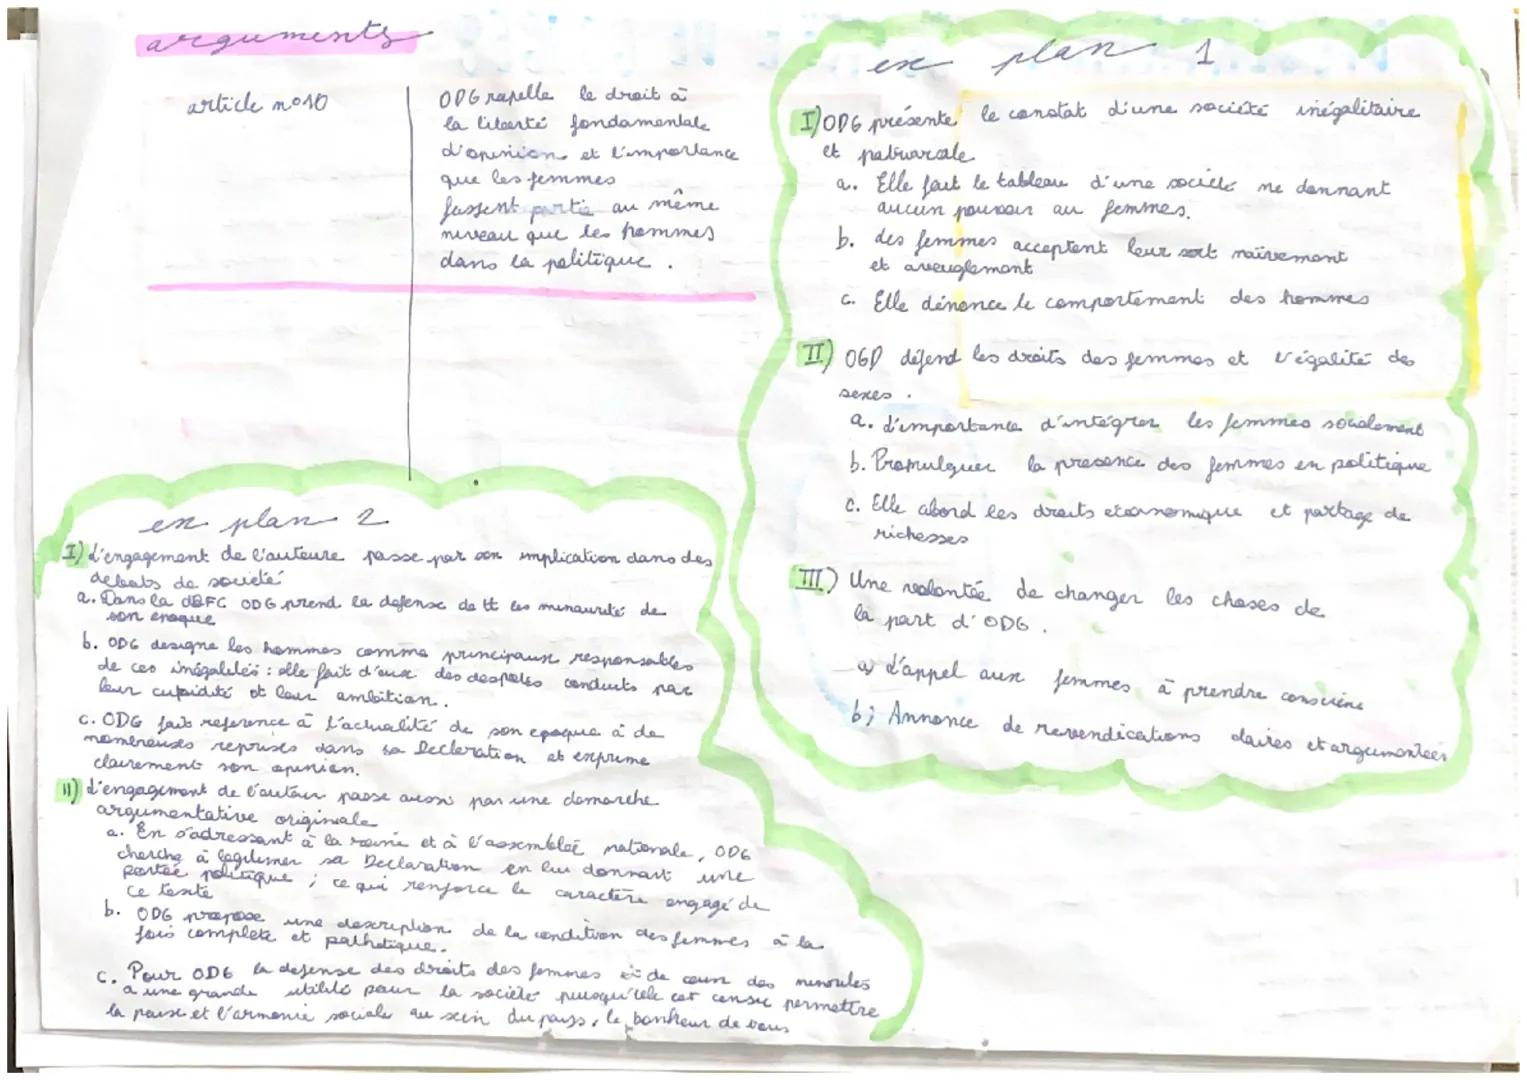 arguments
article n°10
ODG rapelle le droit à
la liberté fondamentale
d'opinion et l'importance
que les femmes
fassent partie au même
niveau que les hommes
dans la politique.
ex plan 1
I) ODG présente le constat d'une société inégalitaire
et patriarcale
a. Elle fait le tableau d'une société ne donnant
aucun pouvoir au femmes.
b. des femmes acceptent leur sort naïvement
et aveuglement
c. Elle dénonce le comportement des hommes
II) OGD défend les droits des femmes et l'égalité des
sexes.
a. L'importance d'intégrer les femmes socialement
b. Promulguer la presence des femmes en politique
c. Elle abord les droits economique et partage de
richesses
III) Une volontée de changer les choses de
la part d'ODG.
a) L'appel aux femmes à prendre conscience
b) Annonce de revendications claires et argumentées
ex plan 2
I) L'engagement de l'auteure passe par son implication dans des
debats de société
a. Dans la DDFC ODG prend la defense de tt les minaurité de
son epoque
b. ODG designe les hommes comme principaux responsables
de ces inégalités : elle fait d'eux des despotes conduits par
leur cupidité et leur ambition.
c. ODG fait reference à l'actualité de son epoque à de
nombreuses reprises dans sa Declaration et exprime
clairement son opinion.
II) L'engagement de l'auteur passe aussi par une demarche
argumentative originale
a. En s'adressant à la reine et à l'assemblée nationale, ODG
cherche à legitimer sa Declaration en lui donnant une
portée politique ; ce qui renforce le caractère engagé de
ce texte
b. ODG propose une description de la condition des femmes à la
fois complete et pathetique.
c. Pour ODG la defense des droits des femmes de ceux des minorités
a une grande utilité pour la société puisqu'elle est censé permettre
la paix et l'armonie sociale au sein du pays, le bonheur de tous